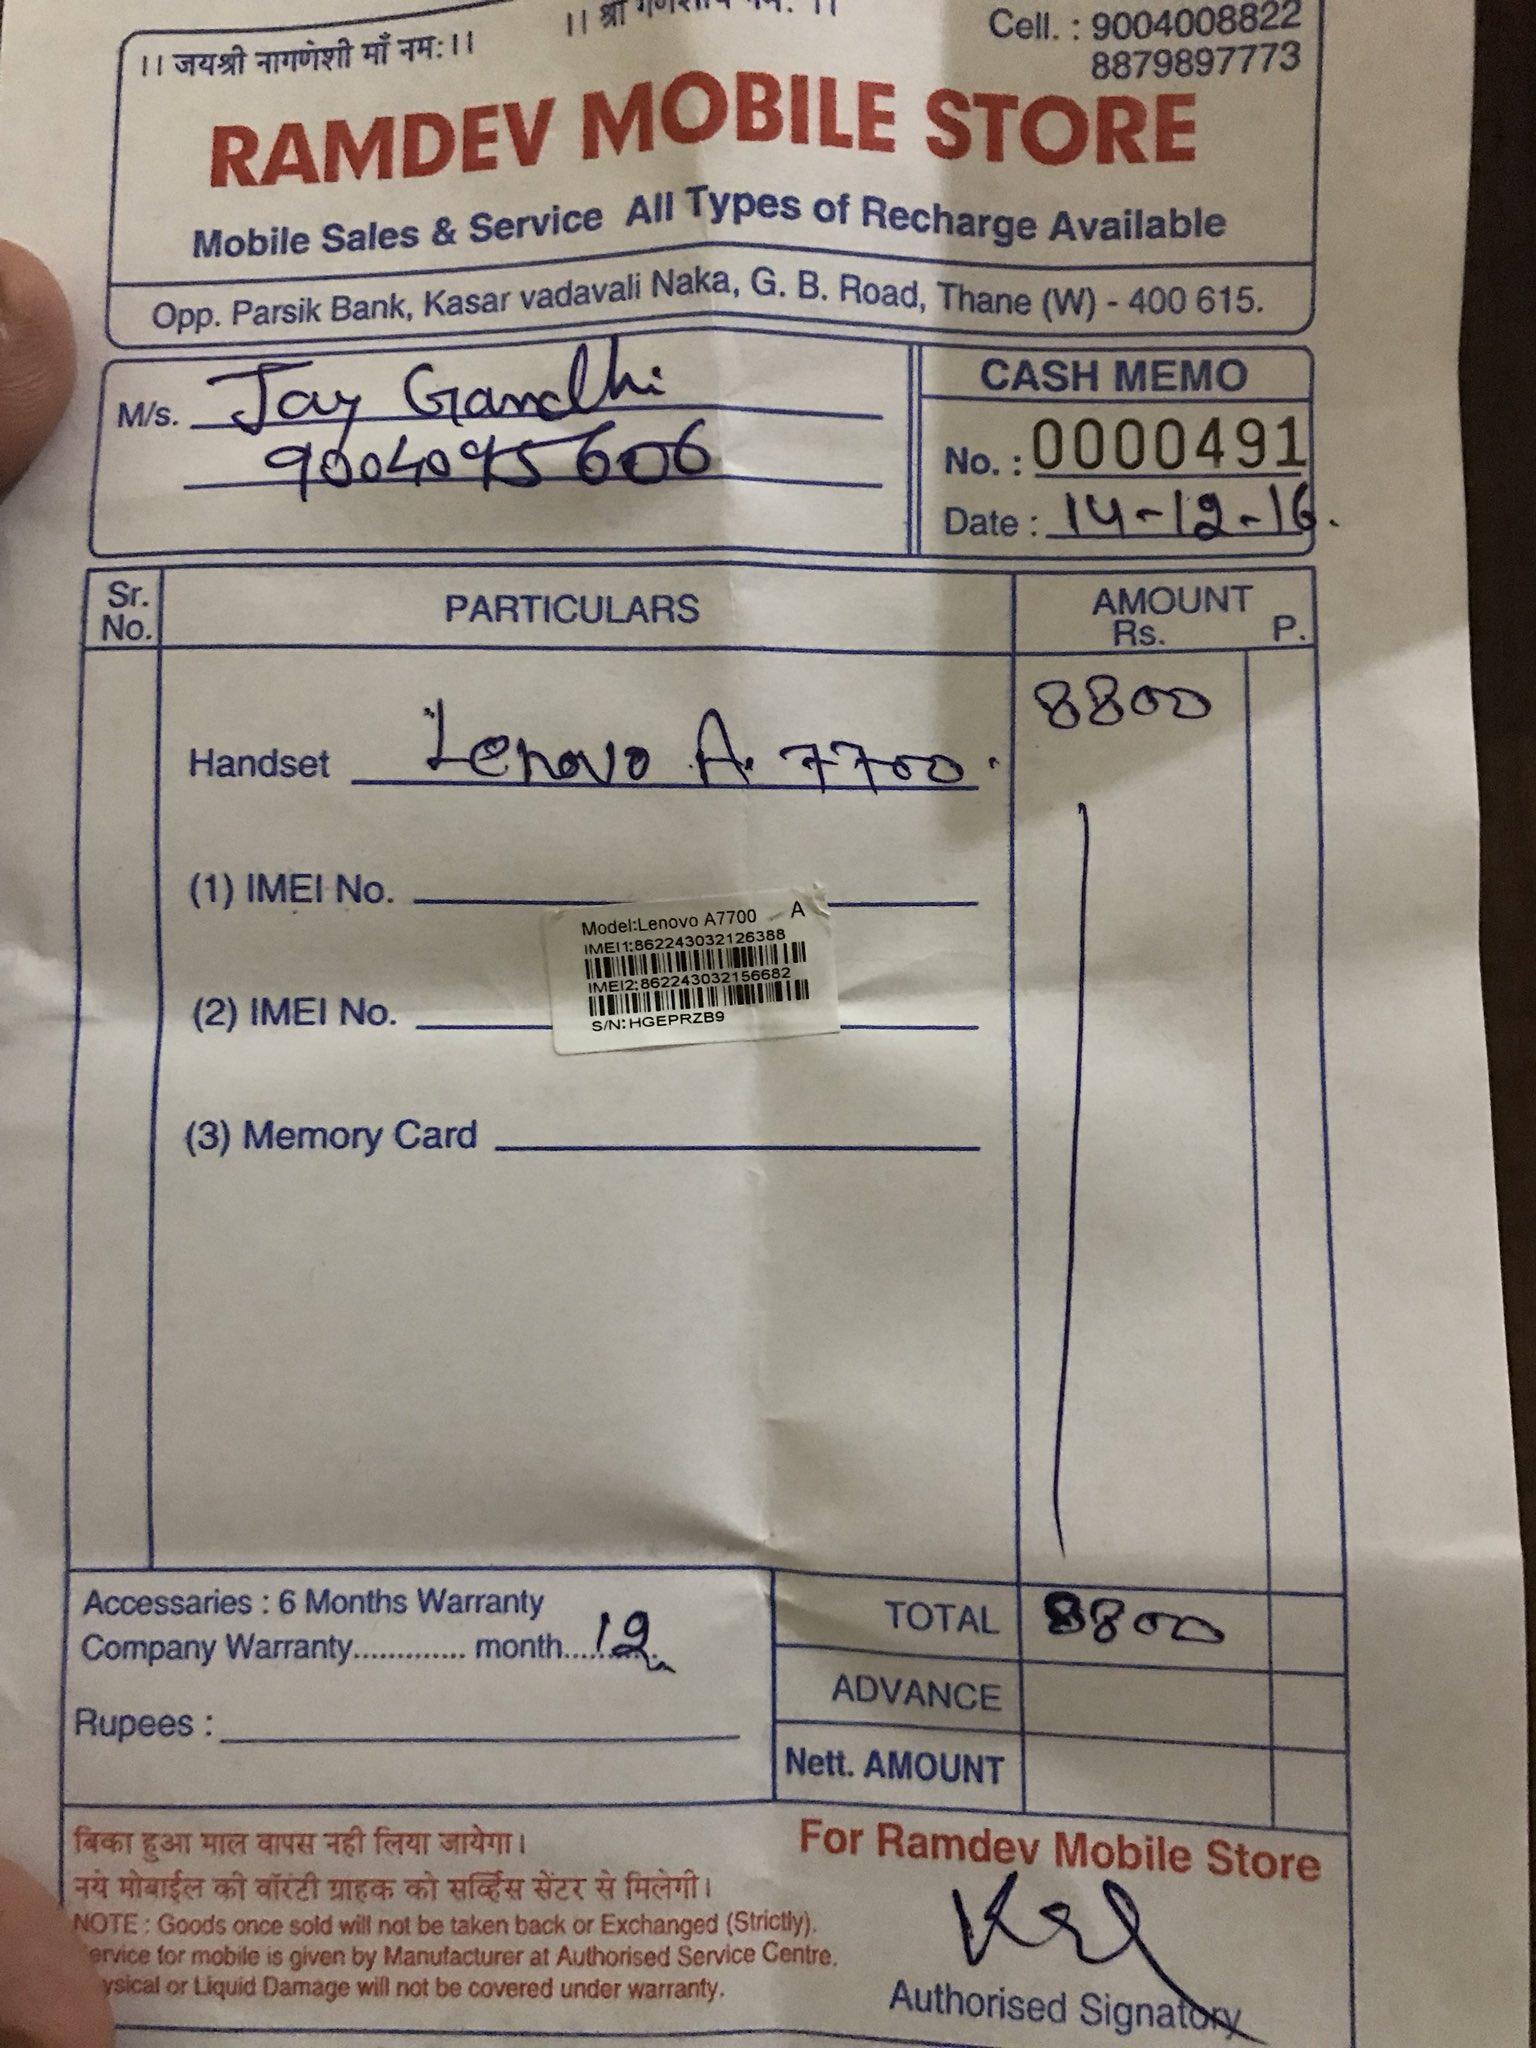 ।। श्री गणेशाय नमः ।।
Cell. : 9004008822
8879897773
।। जयश्री नागणेशी माँ नमः।।
RAMDEV MOBILE STORE
Mobile Sales & Service All Types of Recharge Available
Opp. Parsik Bank, Kasar vadavali Naka, G. B. Road, Thane (W) - 400 615.
M/s. Jay Gandhi
9004095606
CASH MEMO
No. : 0000491
Date : 14-12-16.
Sr. No.
PARTICULARS
AMOUNT
Rs. P.
Handset Lenovo A. 7700. 8800
(1) IMEI No.
Model:Lenovo A7700 A
IMEI1:862243032126388
IMEI2:862243032156682
S/N:HGEPRZB9
(2) IMEI No.
(3) Memory Card
Accessaries : 6 Months Warranty
Company Warranty............. month......12
Rupees :
TOTAL 8800
ADVANCE
Nett. AMOUNT
बिका हुआ माल वापस नही लिया जायेगा।
नये मोबाईल की वॉरंटी ग्राहक को सर्व्हिस सेंटर से मिलेगी।
NOTE : Goods once sold will not be taken back or Exchanged (Strictly).
ervice for mobile is given by Manufacturer at Authorised Service Centre.
ysical or Liquid Damage will not be covered under warranty.
For Ramdev Mobile Store
Authorised Signatory